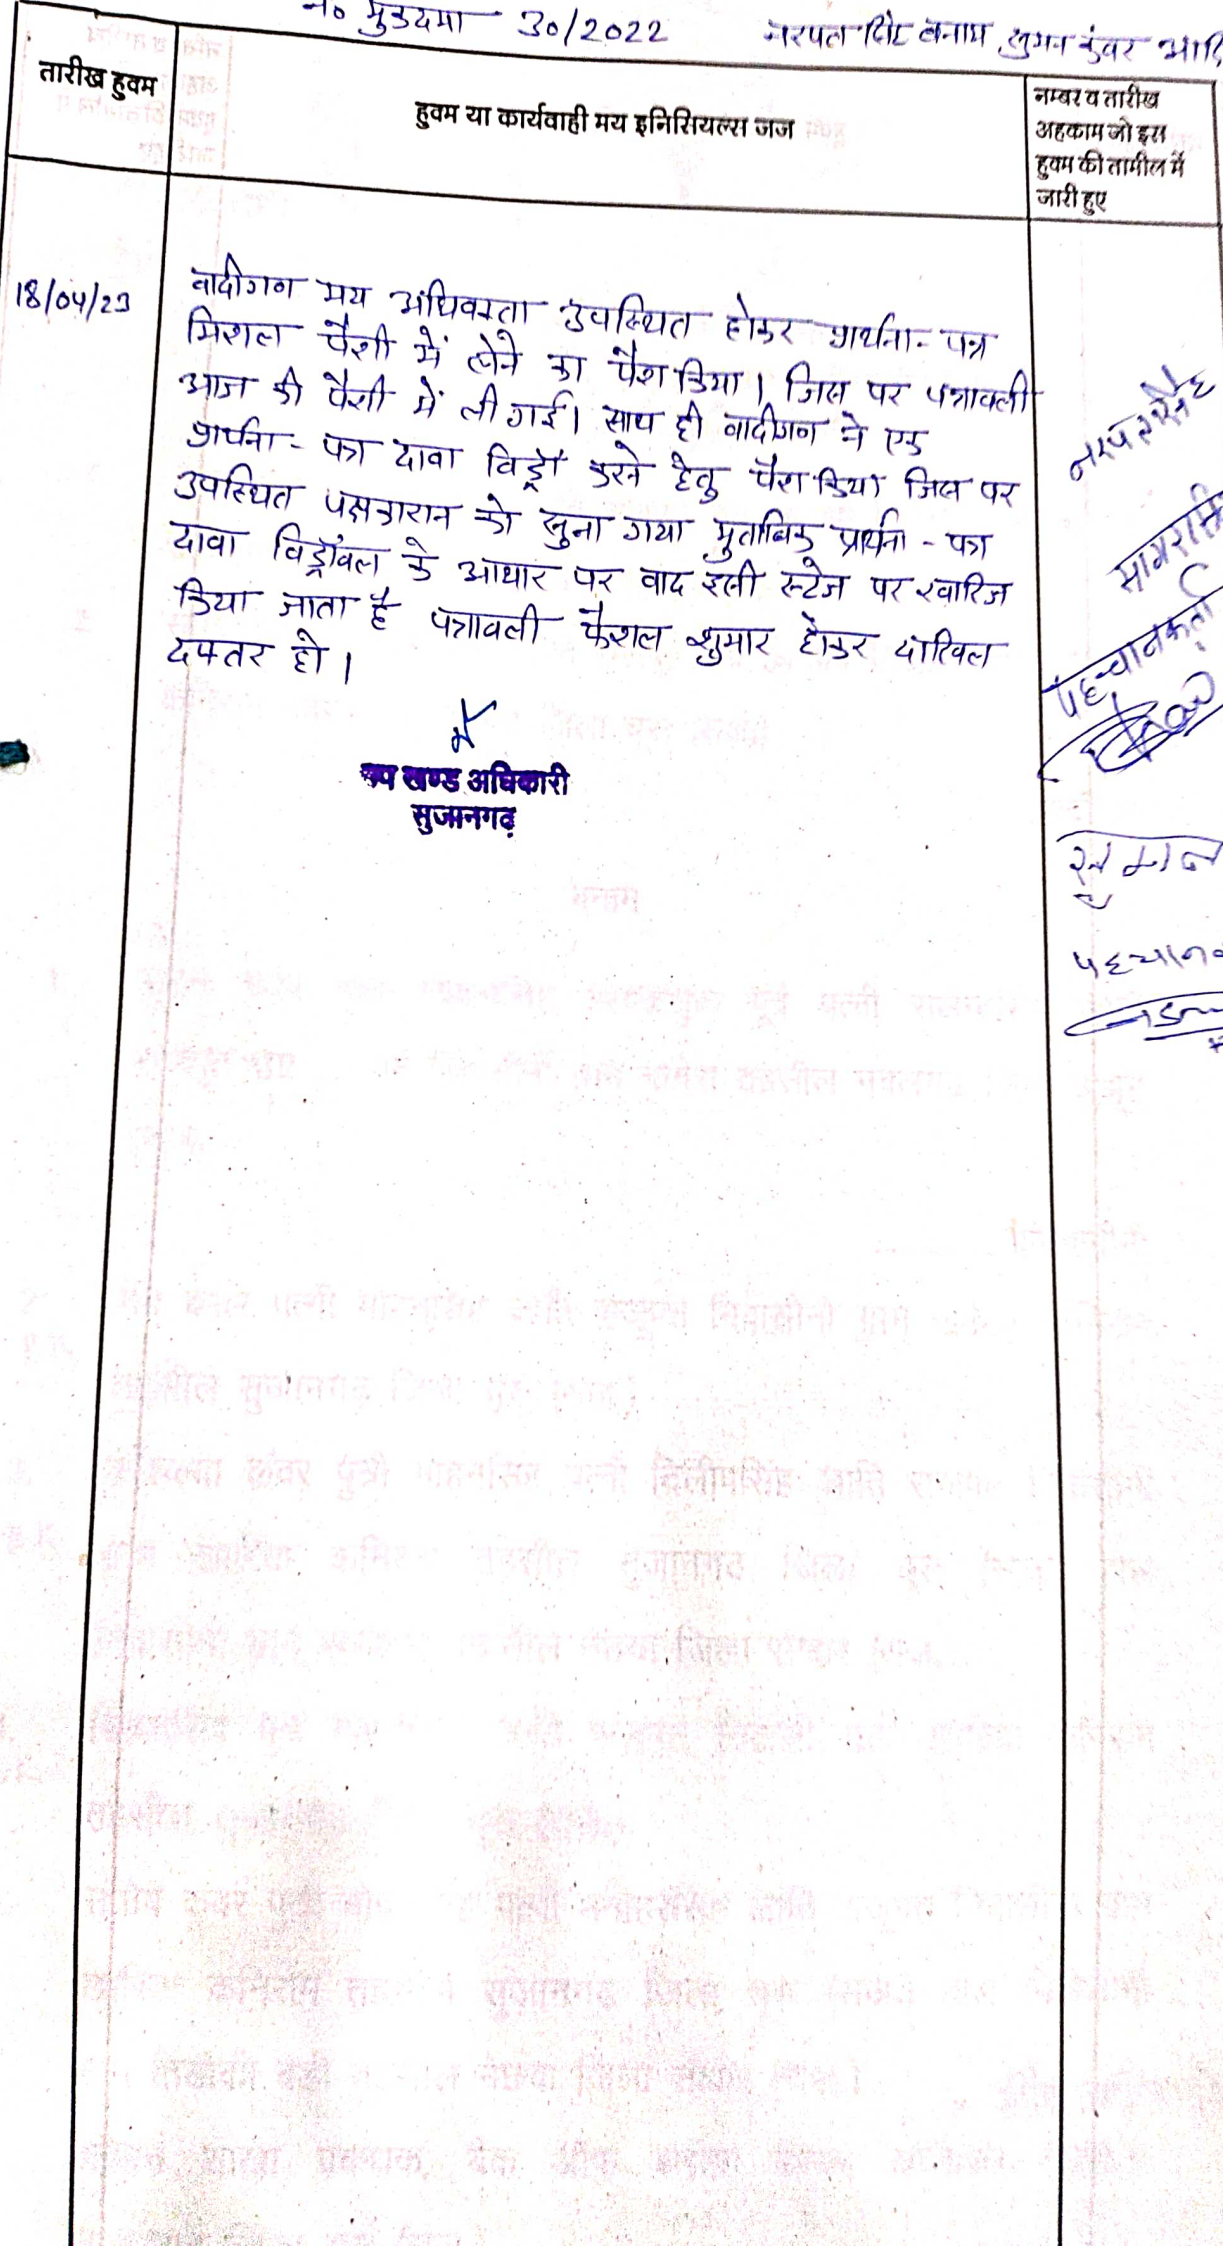 न० मुकदमा 30/2022 नरपत सिंह बनाम सुमन कंवर आदि
तारीख हुक्म
हुक्म या कार्यवाही मय इनिसियल्स जज
नम्बर व तारीख
अहकाम जो इस
हुक्म की तामील में
जारी हुए
18/04/23
वादीगण मय अधिवक्ता उपस्थित होकर प्रार्थना-पत्र
मिशल पैशी में लेने का पैश किया। जिस पर पत्रावली
आज की पैशी में ली गई। साथ ही वादीगण ने एक
प्रार्थना-पत्र दावा विड्रॉ करने हेतु पैश किया जिस पर
उपस्थित पक्षकारान को सुना गया मुताबिक प्रार्थना-पत्र
दावा विड्रॉवल के आधार पर वाद इसी स्टेज पर खारिज
किया जाता है पत्रावली फैशल शुमार होकर दाखिल
दफ्तर हो।
उप खण्ड अधिकारी
सुजानगढ़
नरपतसिंह
पहचानकर्ता
सुमन